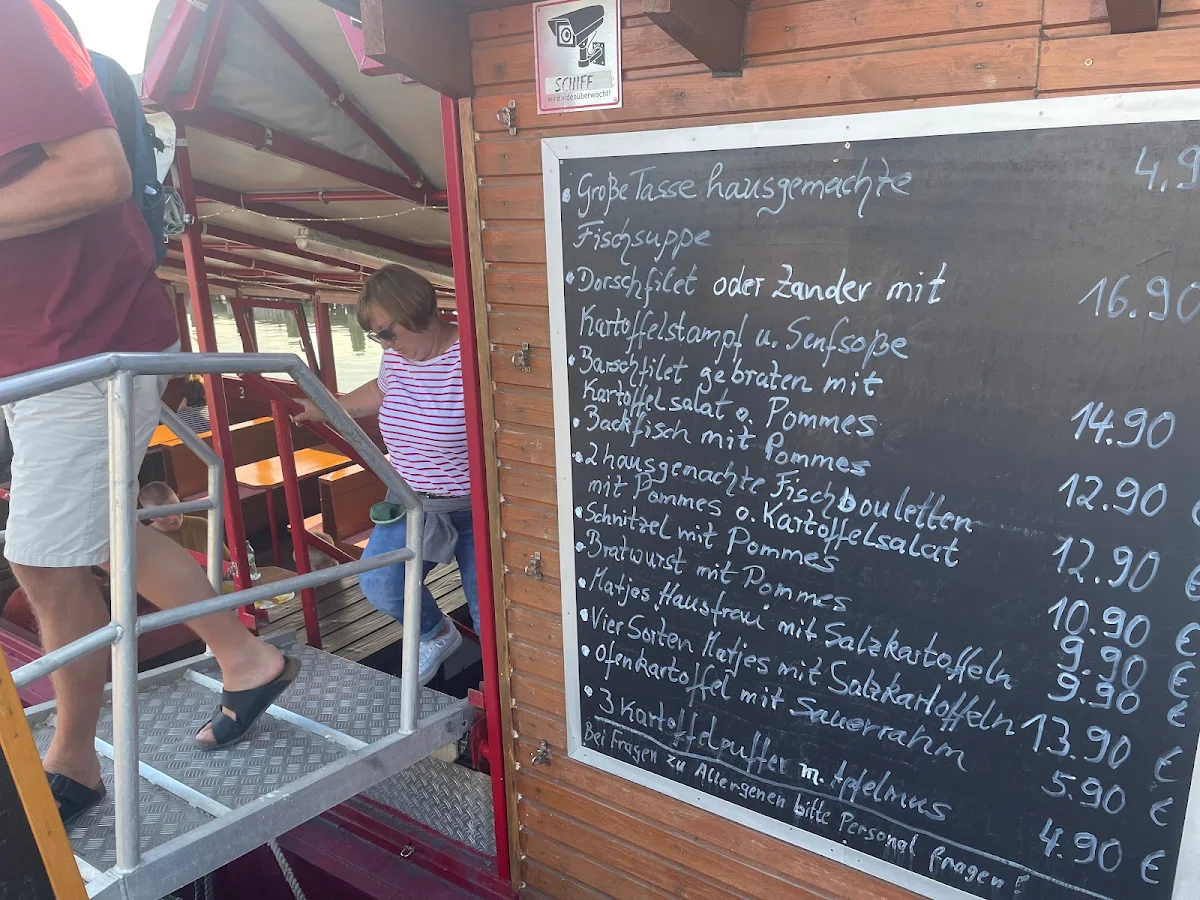 SCHIFF
wird videoüberwacht!
• Große Tasse hausgemachte 4.9
Fischsuppe
• Dorschfilet oder Zander mit 16.90
Kartoffelstampf u. Senfsoße
• Barschfilet gebraten mit
Kartoffelsalat o. Pommes 14.90
• Backfisch mit Pommes 12.90
• 2 hausgemachte Fischbouletten
mit Pommes o. Kartoffelsalat 12.90 €
• Schnitzel mit Pommes 10.90 €
• Bratwurst mit Pommes 9.90 €
• Matjes Hausfrau mit Salzkartoffeln 9.90 €
• Vier Sorten Matjes mit Salzkartoffeln 13.90 €
• Ofenkartoffel mit Sauerrahm 5.90 €
• 3 Kartoffelpuffer m. Apfelmus 4.90 €
Bei Fragen zu Allergenen bitte Personal fragen!
3